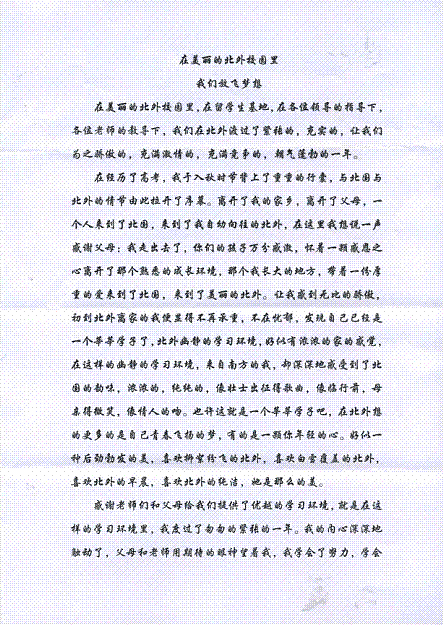 在美丽的北外校园里
我们放飞梦想
在美丽的北外校园里，在留学生基地，在各位领导的指导下，
各位老师的教导下，我们在北外渡过了紧张的，充实的，让我们
为之骄傲的，充满激情的，充满竞争的，朝气蓬勃的一年。
在经历了高考，我于入秋时节背上了重重的行囊，与北国与
北外的情节由此拉开了序幕。离开了我的家乡，离开了父母，一
个人来到了北国，来到了我自幼向往的北外，在这里我想说一声
感谢父母：我走出去了，你们的孩子万分感激，怀着一颗感恩之
心离开了那个熟悉的成长环境，那个我长大的地方，带着一份厚
重的爱来到了北国，来到了美丽的北外。让我感到无比的骄傲，
初到北外离家的我便显得不再承重，不在忧郁，发现自己已经是
一个莘莘学子了，北外幽静的学习环境，好似有浓浓的家的感觉，
在这样的幽静的学习环境，来自南方的我，却深深地感受到了北
国的韵味，浓浓的，纯纯的，像壮士出征得歌曲，像临行前，母
亲得微笑，像情人的吻。也许这就是一个莘莘学子吧，在北外想
的更多的是自己青春飞扬的梦，有的是一颗你年轻的心。好似一
种后劲勃发的美，喜欢柳絮纷飞的北外，喜欢白雪覆盖的北外，
喜欢北外的早晨，喜欢北外的纯洁，她是那么的美。
感谢老师们和父母给我们提供了优越的学习环境，就是在这
样的学习环境里，我度过了匆匆的紧张的一年。我的内心深深地
触动了，父母和老师用期待的眼神望着我，我学会了努力，学会